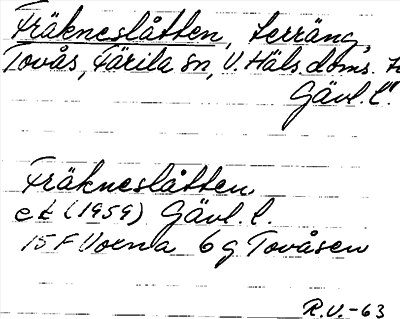 Fräkneslåtten, terräng,
Tovås, Färila sn, V. Häls. doms. h
Gävl. l.
Fräkneslåtten
ek (1959) Gävl. l.
15 F Voxna 6 g Tovåsen
R.V.-63